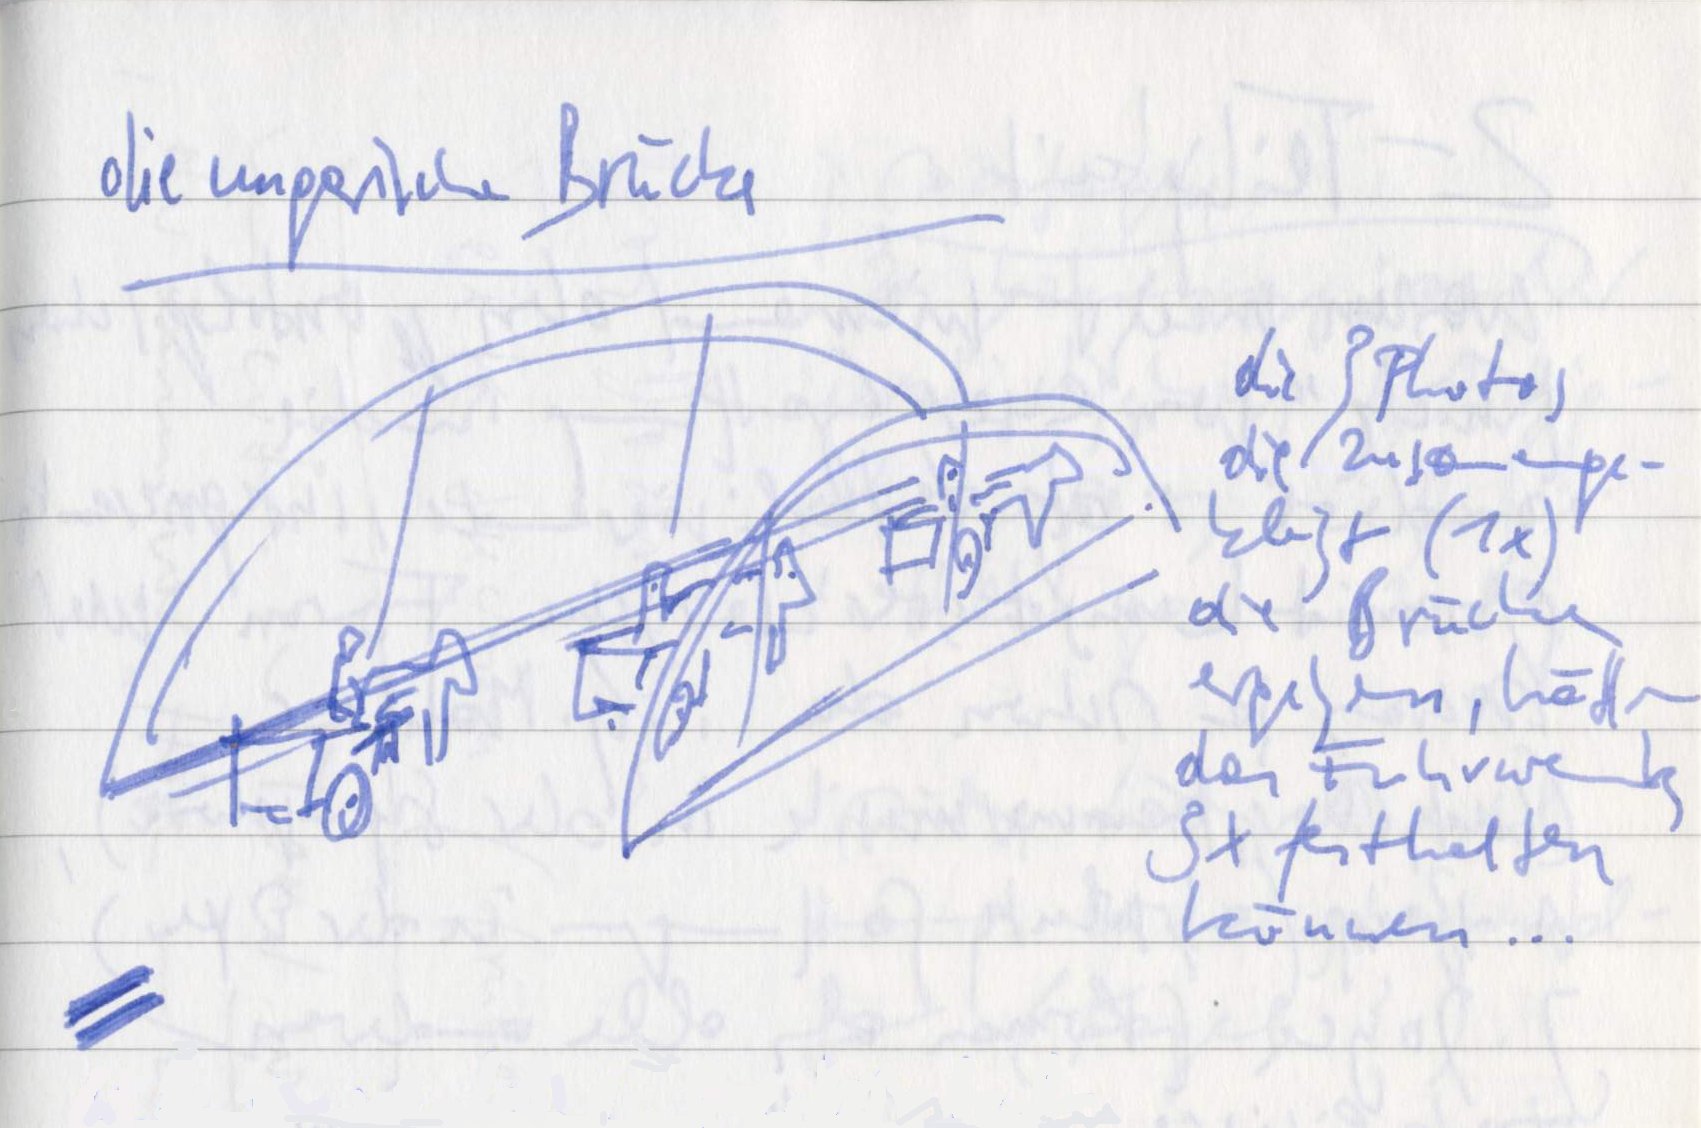 die ungarische Brücke
die 3 Photos
die zusammenge-
klebt (1x)
die Brücke
ergeben, hätten
das Fuhrwerk
3x festhalten
können...